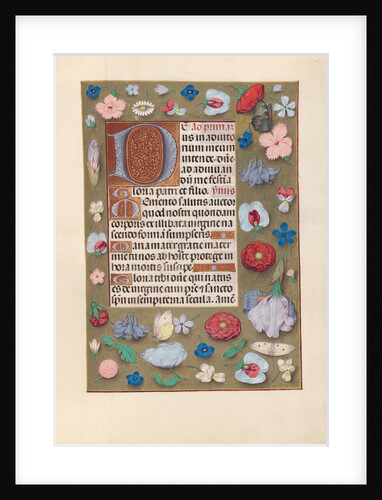 DE Ad primaz
us in adiuto
rium meum
intende. dñe
ad adiuvan
dū me festīa
Gloria patri et filio. ymnus
Memento salutis auctor
quod nostri quondam
corporis ex illibata virgine na
scendo formā sumpseris
Maria mater gratie mater
mie tu nos ab hoste protege in
hora mortis suscipe
Gloria tibi dñe qui natus
es de virgine cum patre et sancto
spū in sempiterna secula. Amē